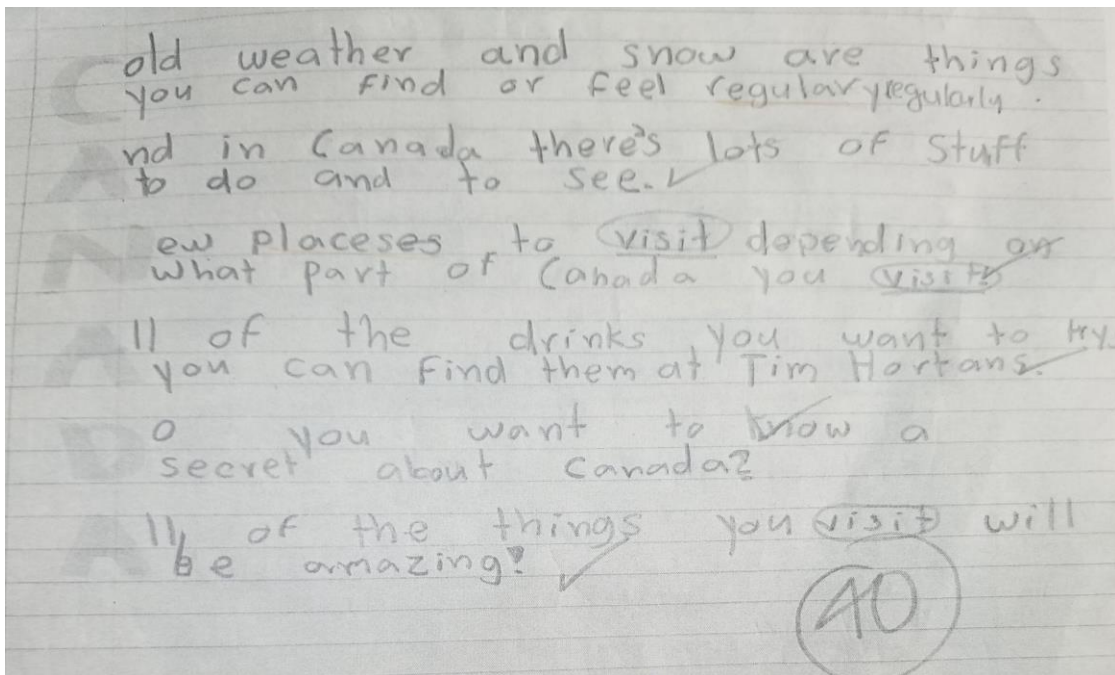 Cold weather and snow are things
you can find or feel regularyregularly.
And in Canada there's lots of stuff
to do and to see.
New placeses to visit depending on
what part of Canada you visit
All of the drinks you want to try
you can find them at Tim Hortans.
Do you want to know a
secret about canada?
All of the things you visit will
be amazing!
40